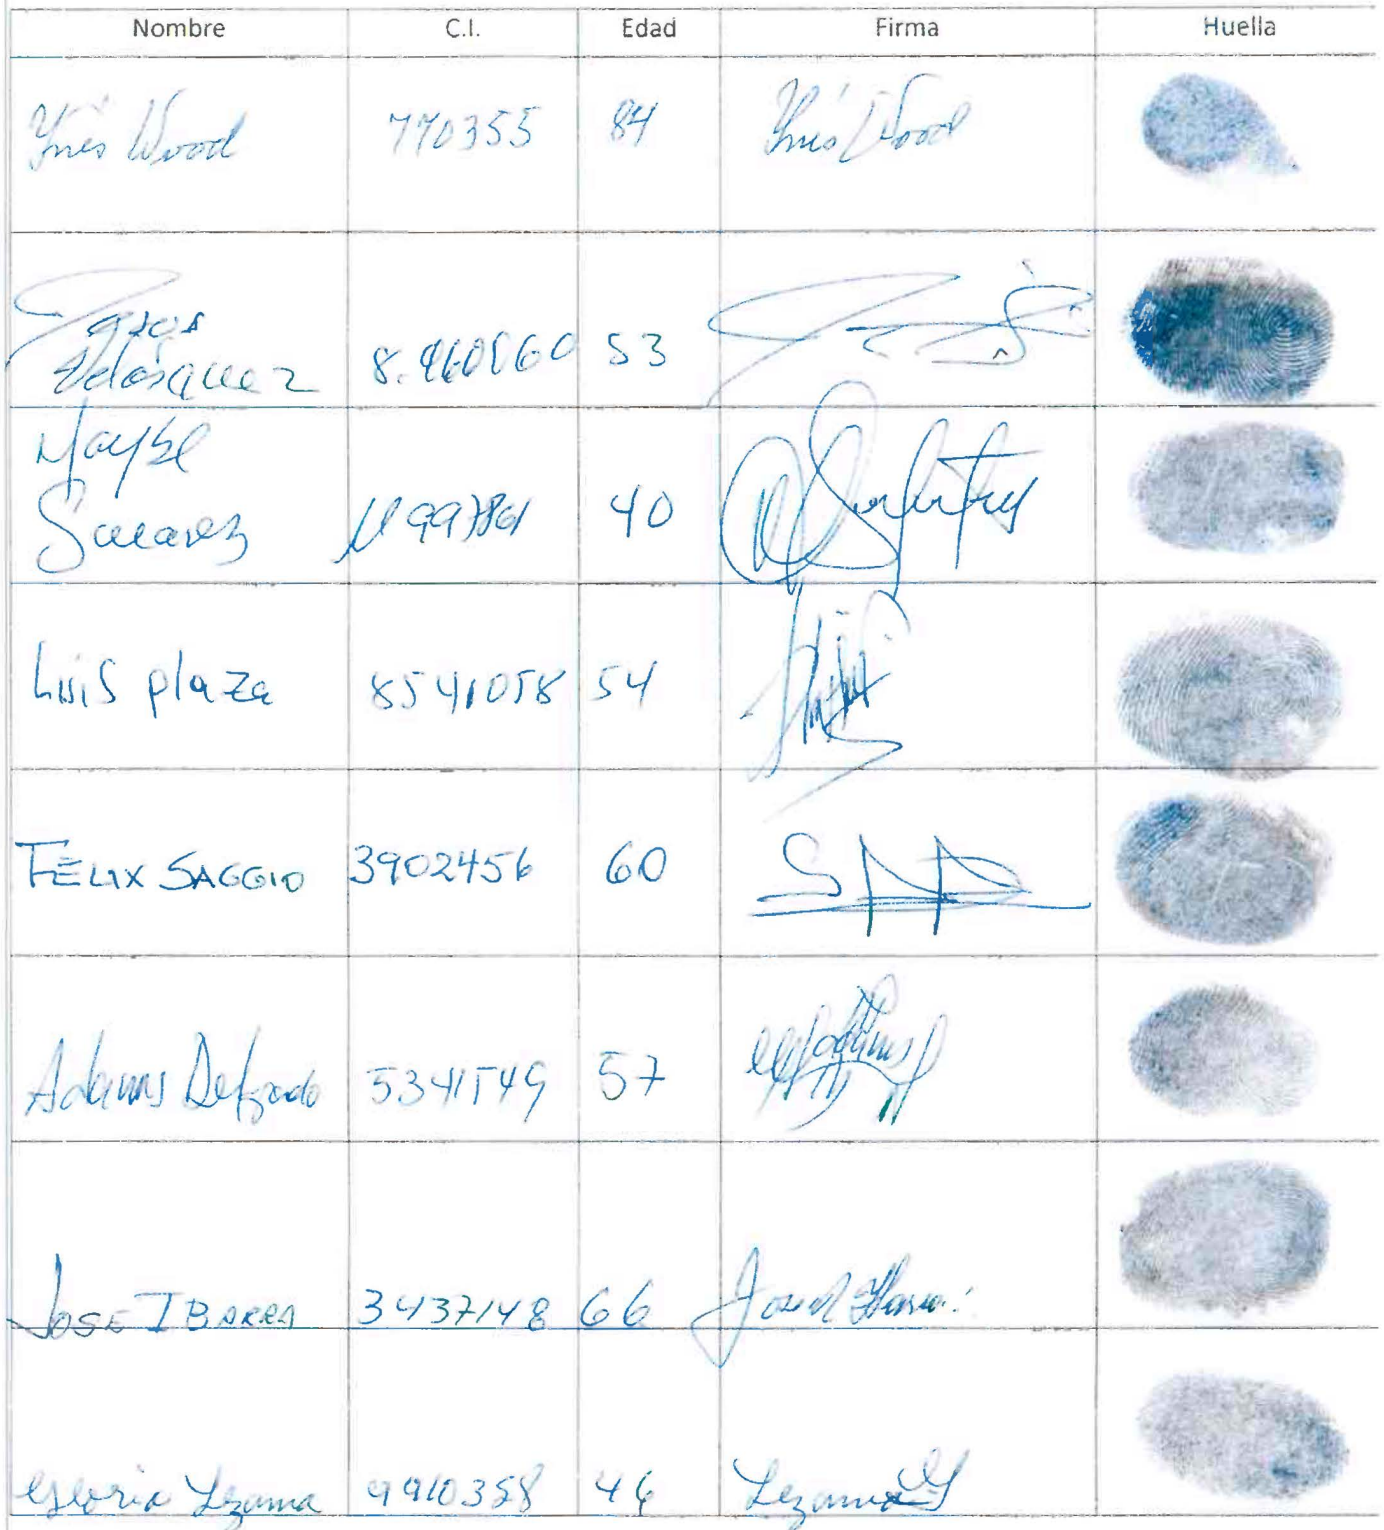 Nombre C.I. Edad Firma Huella
Ynés Wood 770355 84 Ynés Wood
Velásquez 53
Suarez 40
Luis plaza 8541058 54
FÉLIX SAGGIO 3902456 60
Adams Delgado 5341549 57
JOSE IBARRA 3437148 66
Gloria Lezama 9910358 46 Lezama G